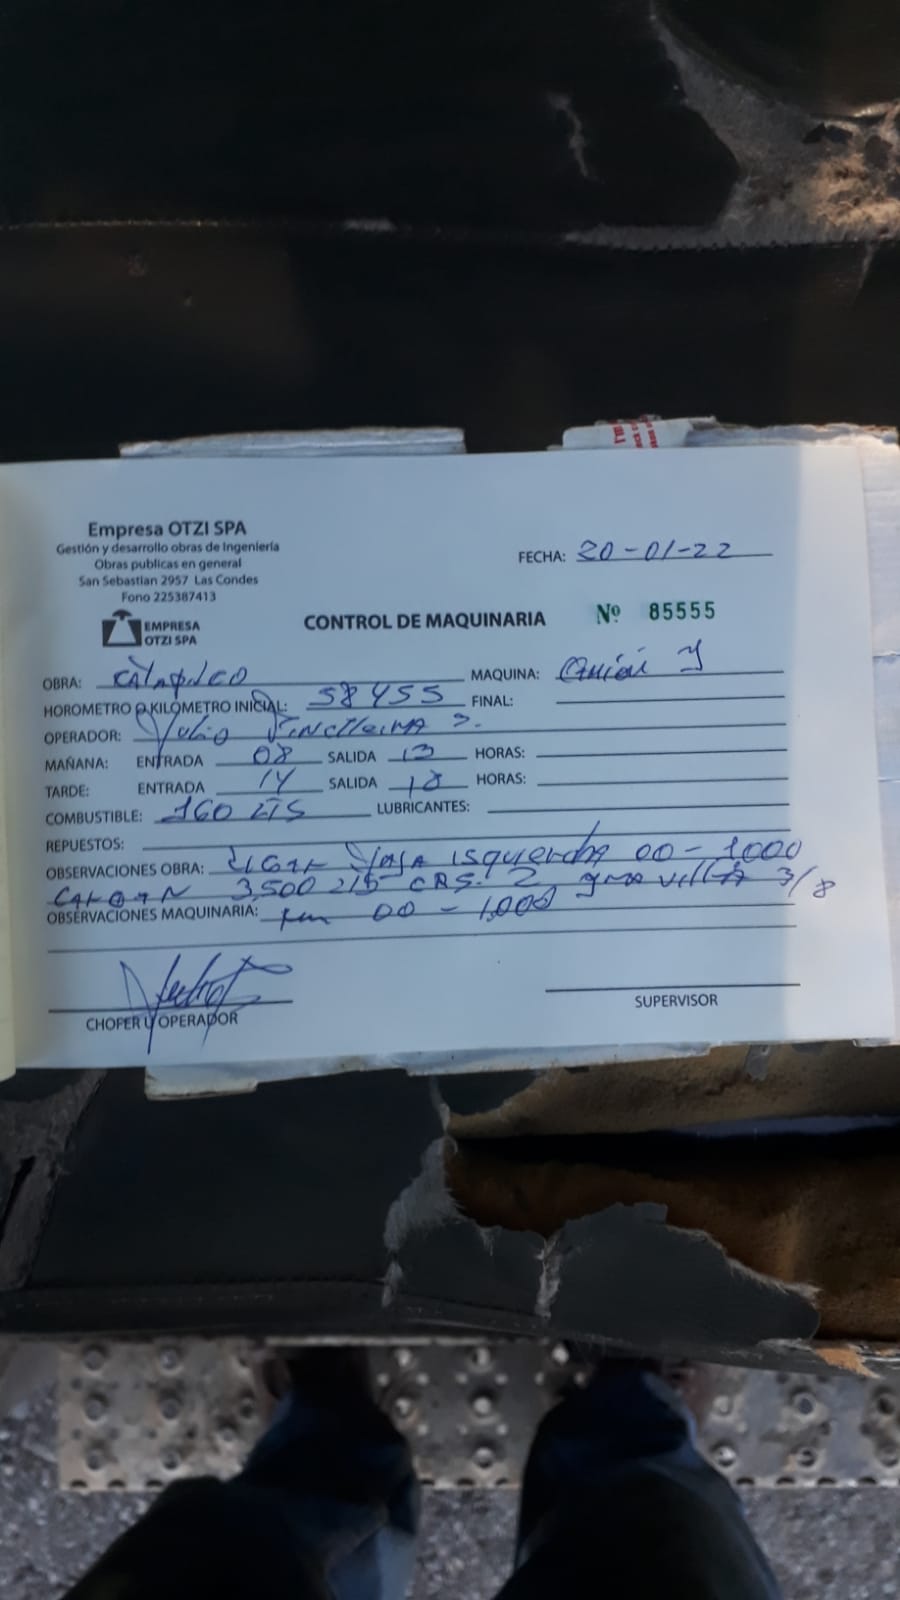 Empresa OTZI SPA
Gestión y desarrollo obras de Ingeniería
Obras publicas en general
San Sebastian 2957 Las Condes
Fono 225387413
EMPRESA
OTZI SPA
FECHA: 20-01-22
CONTROL DE MAQUINARIA Nº 85555
OBRA: MAQUINA:
HOROMETRO O KILOMETRO INICIAL: 58455 FINAL:
OPERADOR: Julio
MAÑANA: ENTRADA 08 SALIDA 13 HORAS:
TARDE: ENTRADA 14 SALIDA 18 HORAS:
COMBUSTIBLE: 160 LTS LUBRICANTES:
REPUESTOS:
OBSERVACIONES OBRA: isquerda 00-1000
3,500 CRS. 2 3/8
OBSERVACIONES MAQUINARIA: km 00-1,000
CHOFER U OPERADOR
SUPERVISOR